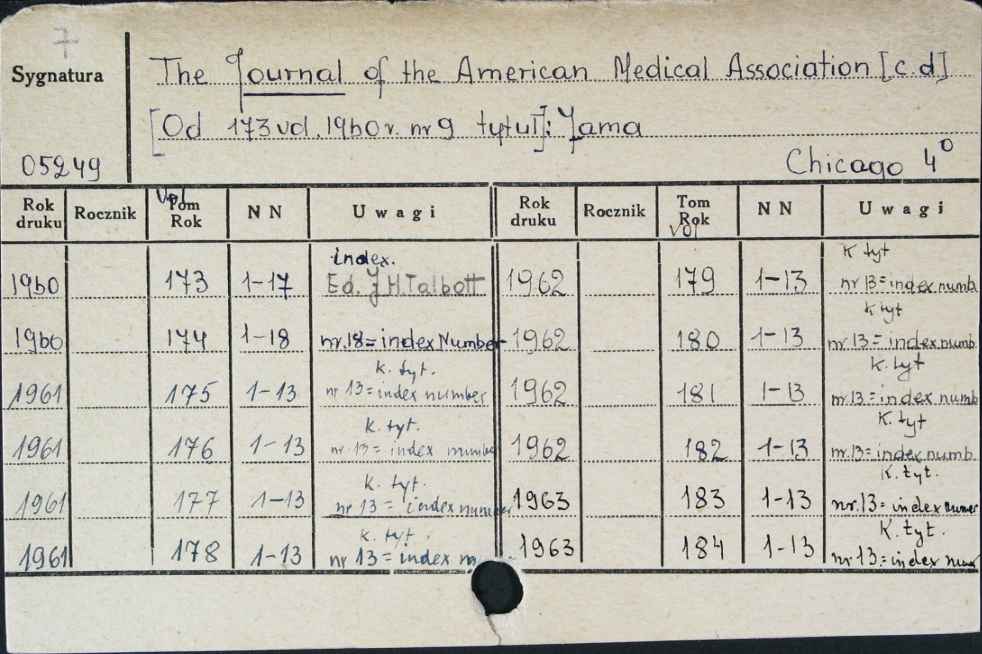 7
Sygnatura
05249
The Journal of the American Medical Association [c.d]
[Od 173 vol. 1960 r. nr 9 tytuł]: Jama
Chicago 4°
Rok druku Rocznik Vol Tom Rok NN Uwagi Rok druku Rocznik Tom Rok vol NN Uwagi
index. K tyt
1960 173 1-17 Ed. J H. Talbott 1962 179 1-13 nr 13=index numb
K tyt
1960 174 1-18 nr. 18=index Number 1962 180 1-13 nr. 13=index numb
K. tyt. K. tyt
1961 175 1-13 nr 13=index number 1962 181 1-13 nr. 13=index numb
K. tyt. K. tyt
1961 176 1-13 nr. 13= index number 1962 182 1-13 nr. 13=index numb.
K. tyt. K. tyt.
1961 177 1-13 nr 13= index number 1963 183 1-13 nr. 13= index numer
K. tyt. K. tyt.
1961 178 1-13 nr 13=index n 1963 184 1-13 nr. 13=index num